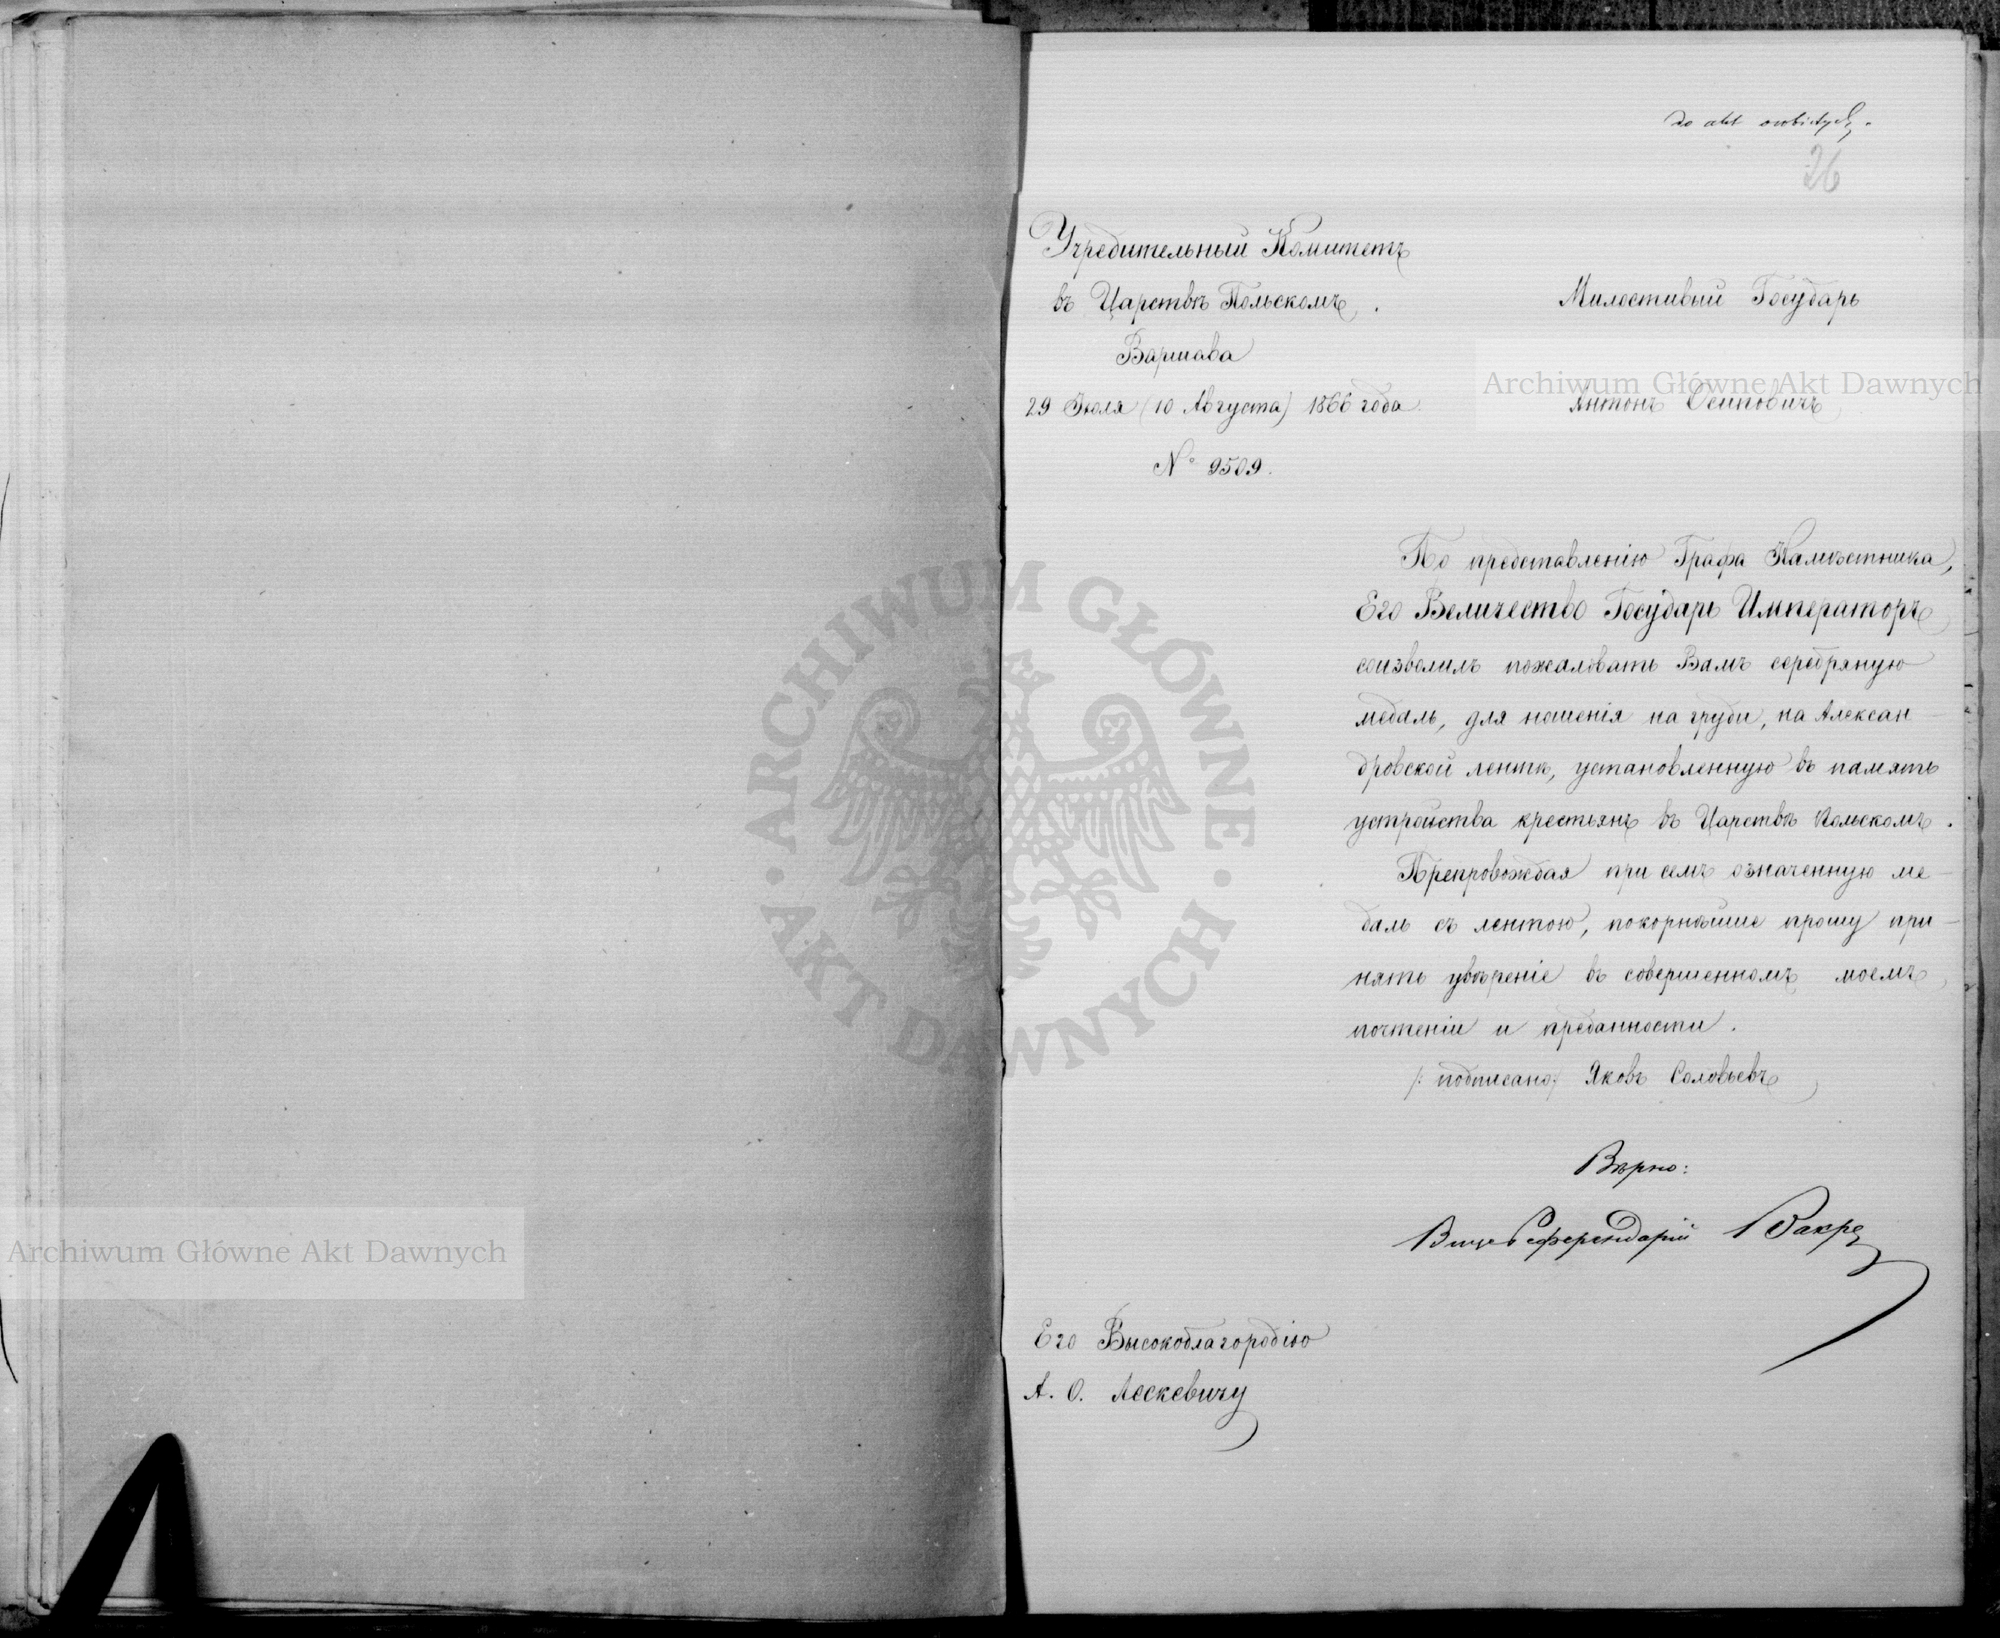 do akt osobistych.
26
Учредительный Комитетъ
въ Царствѣ Польскомъ.
Варшава
29 Июля (10 Августа) 1866 года.
№ 9509.
Милостивый Государь
Антонъ Осиповичъ
По представленію Графа Намѣстника,
Его Величество Государь Императоръ
соизволилъ пожаловать Вамъ серебряную
медаль, для ношенія на груди, на Алексан-
дровской лентѣ, установленную въ память
устройства крестьянъ въ Царствѣ Польскомъ.
Препровождая при семъ означенную ме-
даль съ лентою, покорнѣйше прошу при-
нять увѣреніе въ совершенномъ моемъ
почтеніи и преданности.
/: подписано:/ Яковъ Соловьевъ
Вѣрно:
Вице Референдарій
Его Высокоблагородію
А. О. Лескевичу
Archiwum Główne Akt Dawnych
Archiwum Główne Akt Dawnych
· ARCHIWUM GŁÓWNE · AKT DAWNYCH